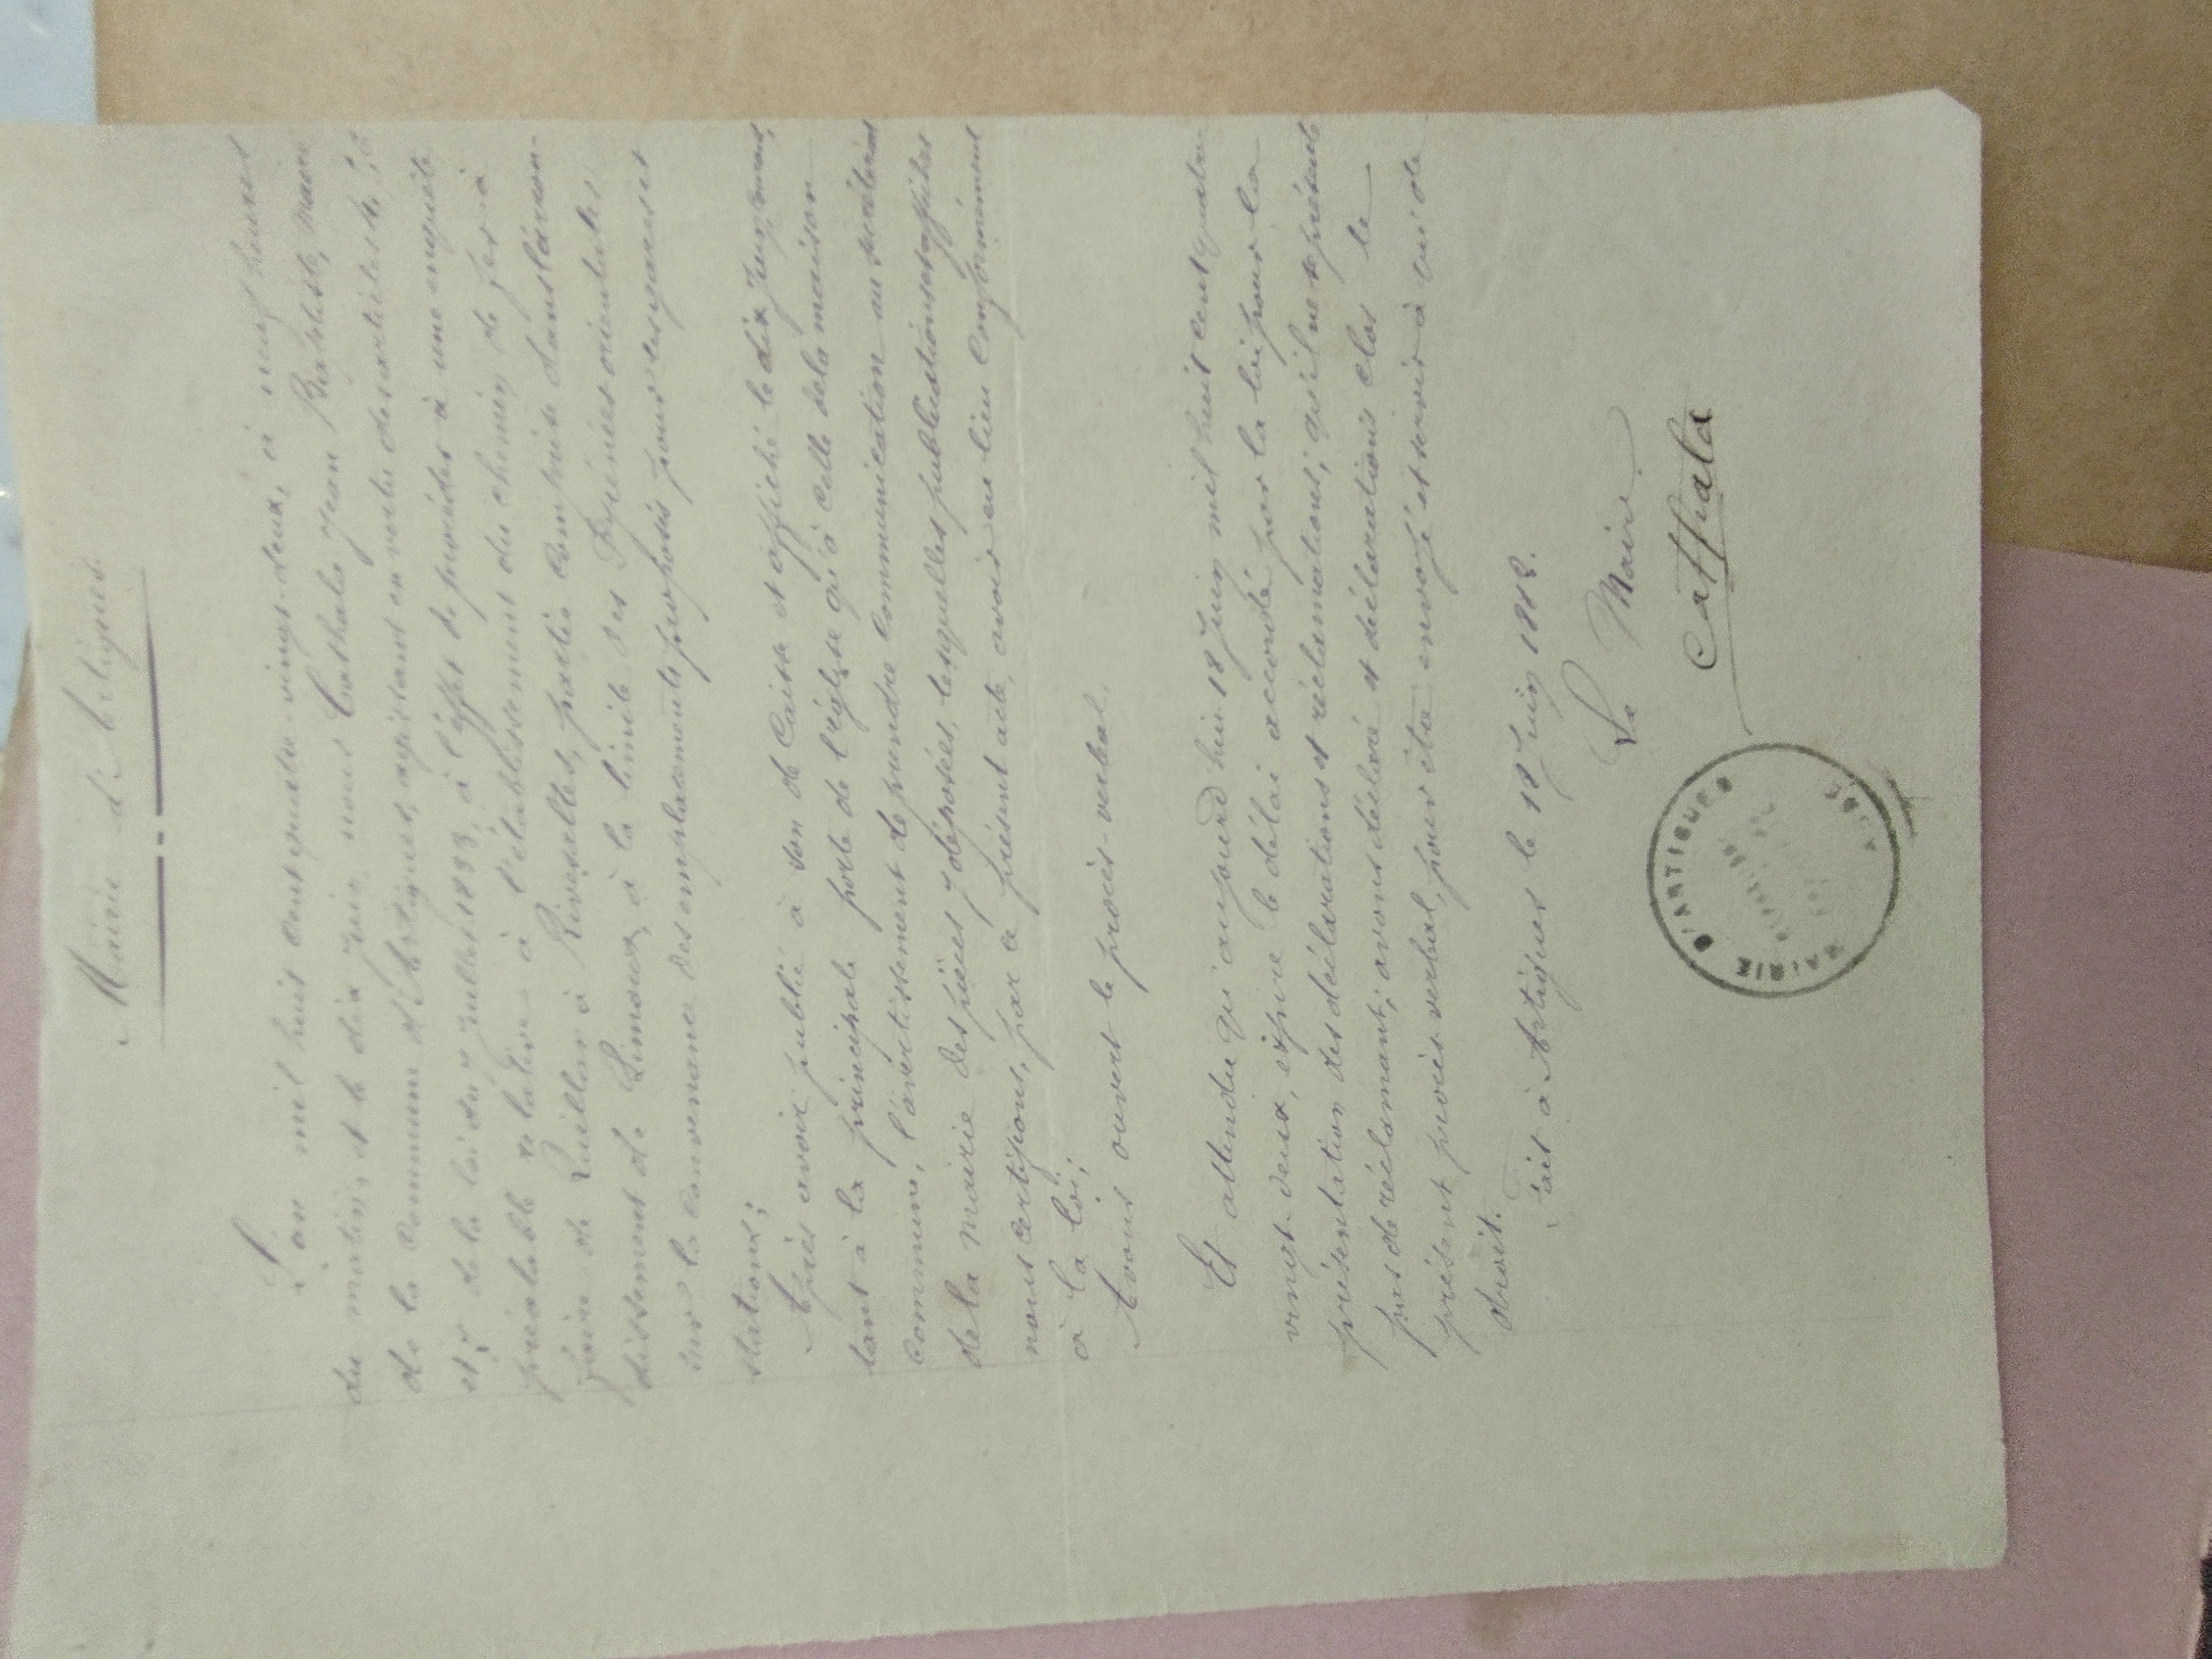 Mairie d'Artigues
L'an mil huit cent quatre-vingt-deux, à neuf heures
du matin, et le dix juin nous Cathala Jean Baptiste, maire
de la commune d'Artigues, agissant en vertu des articles 4,
et 7 de la loi du 7 juillet à l'effet de procéder à une enquête
préalable relative à l'établissement du chemin de fer à
faire de Quillan à Rivesaltes, partie comprise dans l'arron-
dissement de Limoux, à la limite des Pyrénées orientales
sur la convenance des emplacements proposés pour les gares et
stations;
Après avoir publié à son de caisse et affiché le dix Juin, courant,
tant à la principale porte de l'église qu'à celle de la maison
commune, l'avertissement de prendre communication au secrétariat
de la mairie des pièces y déposées, lesquelles publications et affiches
nous certifions, par ce présent acte, avoir eu lieu conformément
à la loi;
Avons ouvert le procès-verbal.
Et attendu qu'aujourd'hui 18 Juin mil huit cent quatre
vingt-deux, expire le délai accordé par la loi pour la
présentation des déclarations et réclamations; qu'il ne se présente
pas de réclamant; avons déclaré et déclarations clos le
présent procès-verbal, pour être envoyé et servir à qui de
droit.
Fait à Artigues le 18 Juin 1882.
Le Maire
Cathala
MAIRIE D'ARTIGUES
AUDE